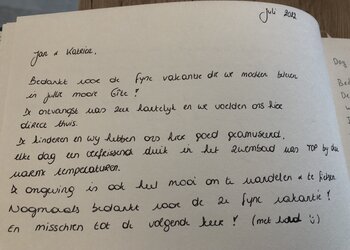 Juli 2012
Jan & Katrice,
Bedankt voor de fijne vakantie die we mochten beleven
in jullie mooie Gîte!
De ontvangst was zeer hartelijk en we voelden ons hier
direct thuis.
De kinderen en wij hebben ons hier goed geamuseerd,
elke dag een verfrissende duik in het zwembad was TOP bij deze
warme temperaturen.
De omgeving is ook heel mooi om te wandelen & te fietsen
Nogmaals bedankt voor de 2e fijne vakantie!
En misschien tot de volgende keer! (met hond ü)
Dag
Be
De
w